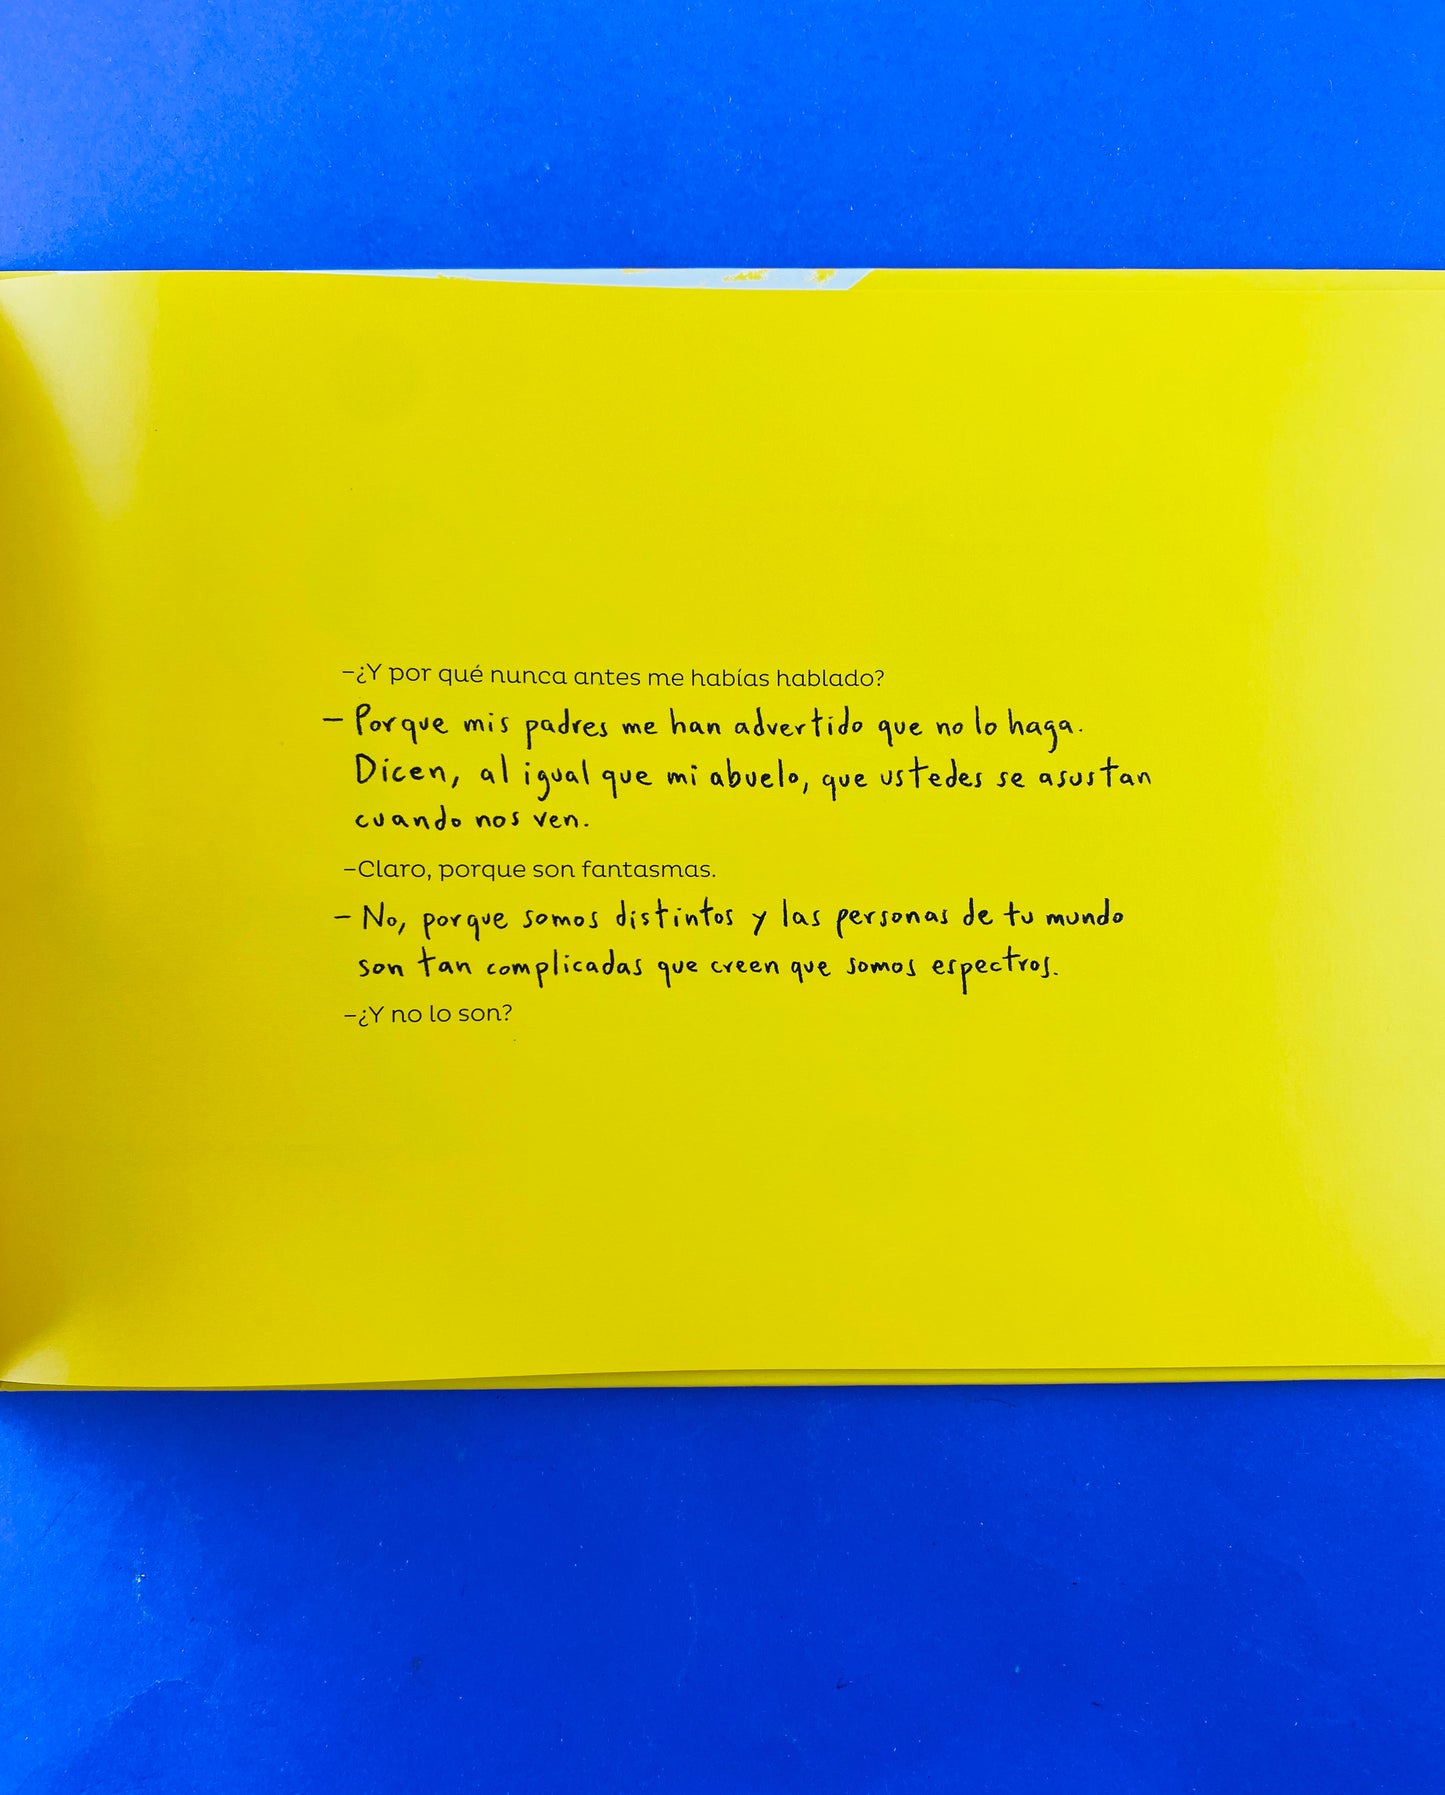 –¿Y por qué nunca antes me habías hablado?
– Porque mis padres me han advertido que no lo haga.
Dicen, al igual que mi abuelo, que ustedes se asustan
cuando nos ven.
–Claro, porque son fantasmas.
– No, porque somos distintos y las personas de tu mundo
son tan complicadas que creen que somos espectros.
–¿Y no lo son?